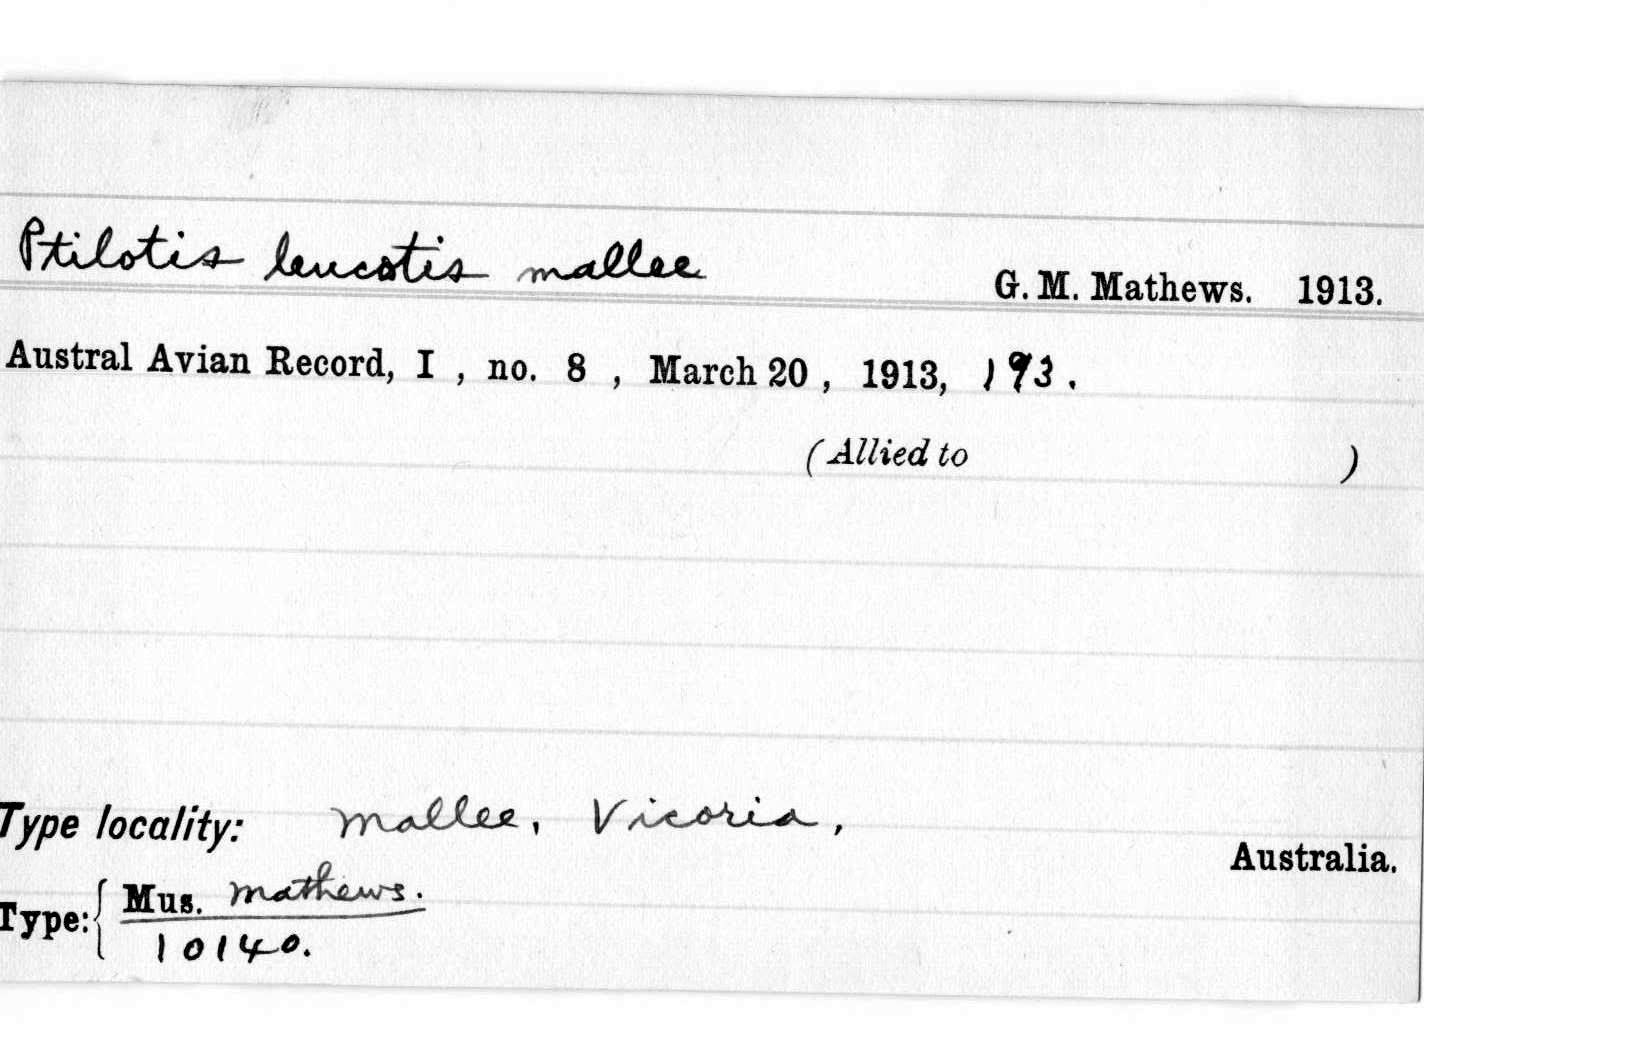 Ptilotis leucotis mallee G. M. Mathews. 1913.
Austral Avian Record, I , no. 8 , March 20 , 1913, 193 .
(Allied to )
Type locality: Mallee, Vicoria, Australia.
Type: { Mus. Mathews.
10140.